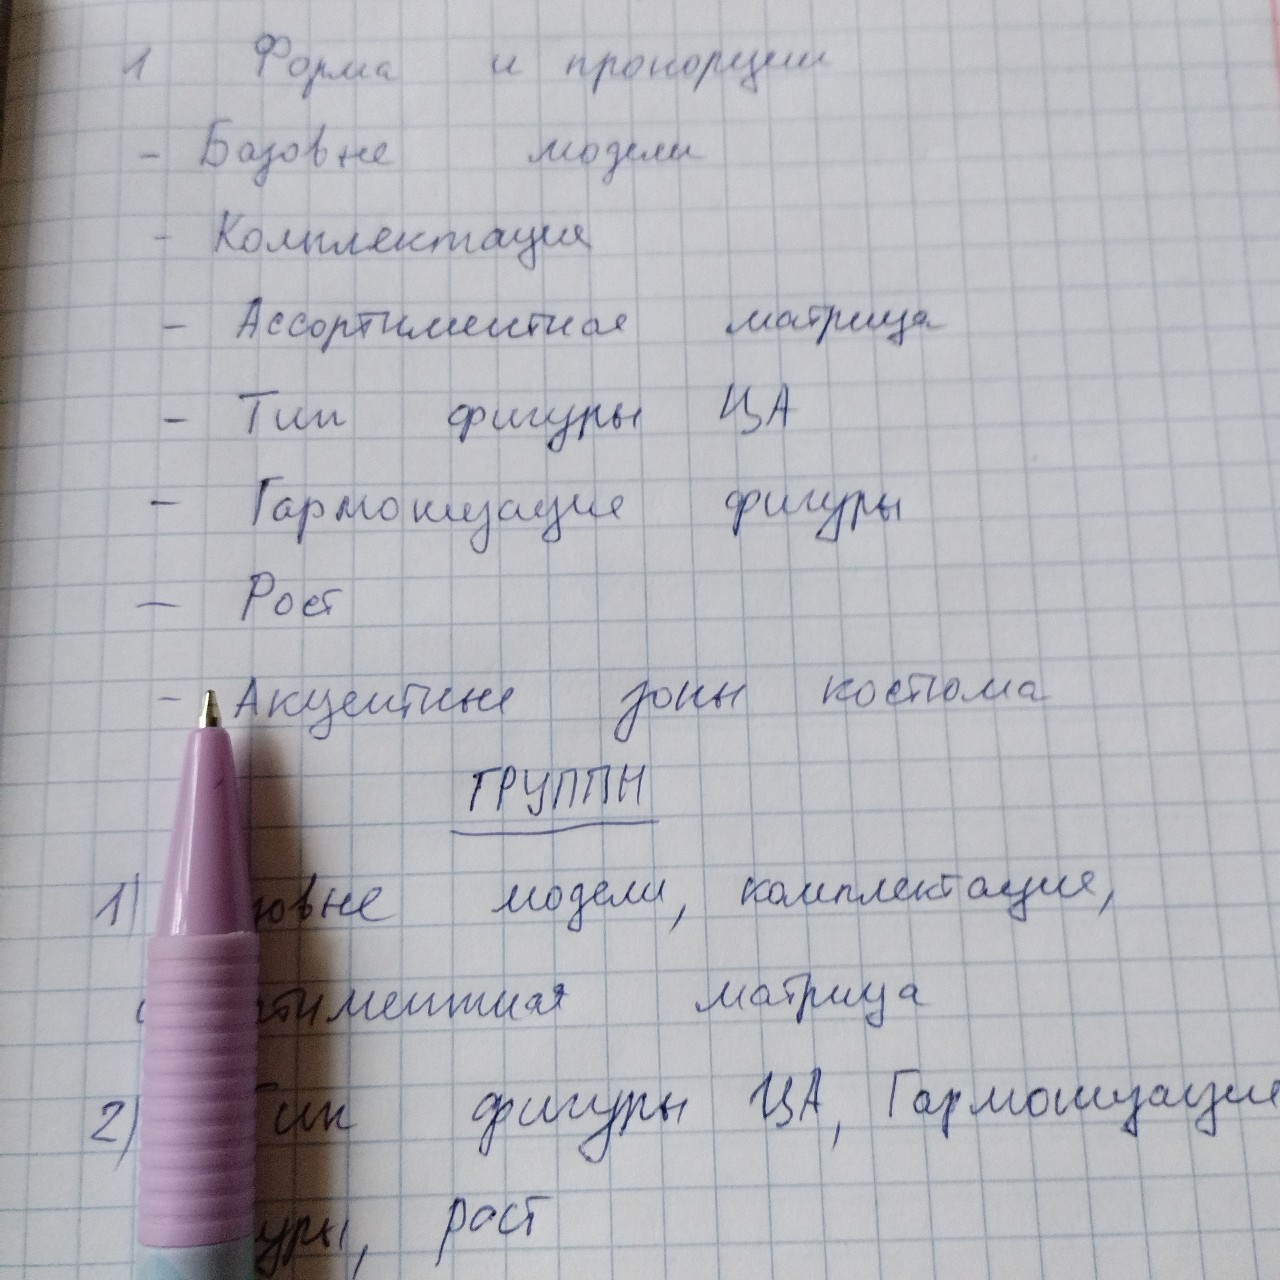 1 Форма и пропорции
- Базовые модели
- Комплектация
- Ассортиментная матрица
- Тип фигуры ЦА
- Гармонизация фигуры
- Рост
- Акцентные зоны костюма
ГРУППЫ
1) модели, комплектация,
матрица
2) Тип фигуры ЦА, Гармонизация
рост